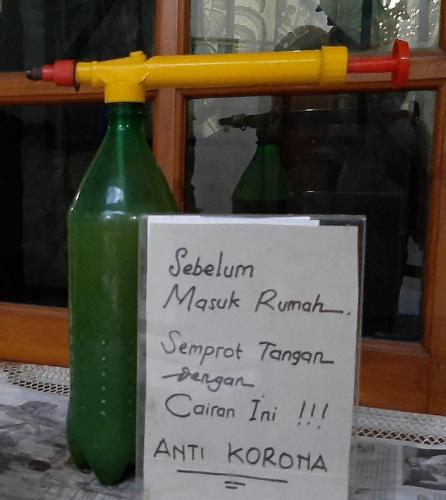 Sebelum
Masuk Rumah.
Semprot Tangan
dengan
Cairan Ini !!!
ANTI KORONA